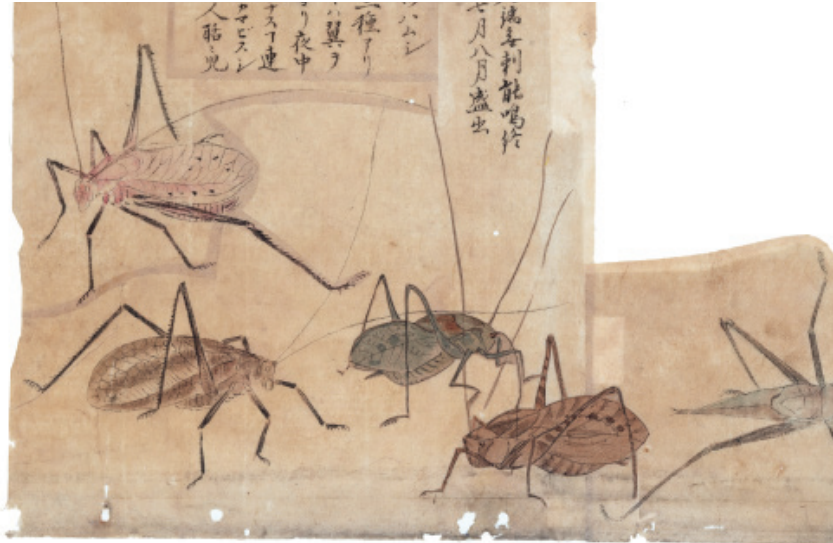 利能鳴
七月八月盛出
ハムシ
種アリ
ハ翼ヲ
リ夜中
ナスヿ連
カマビスシ
人聒々児